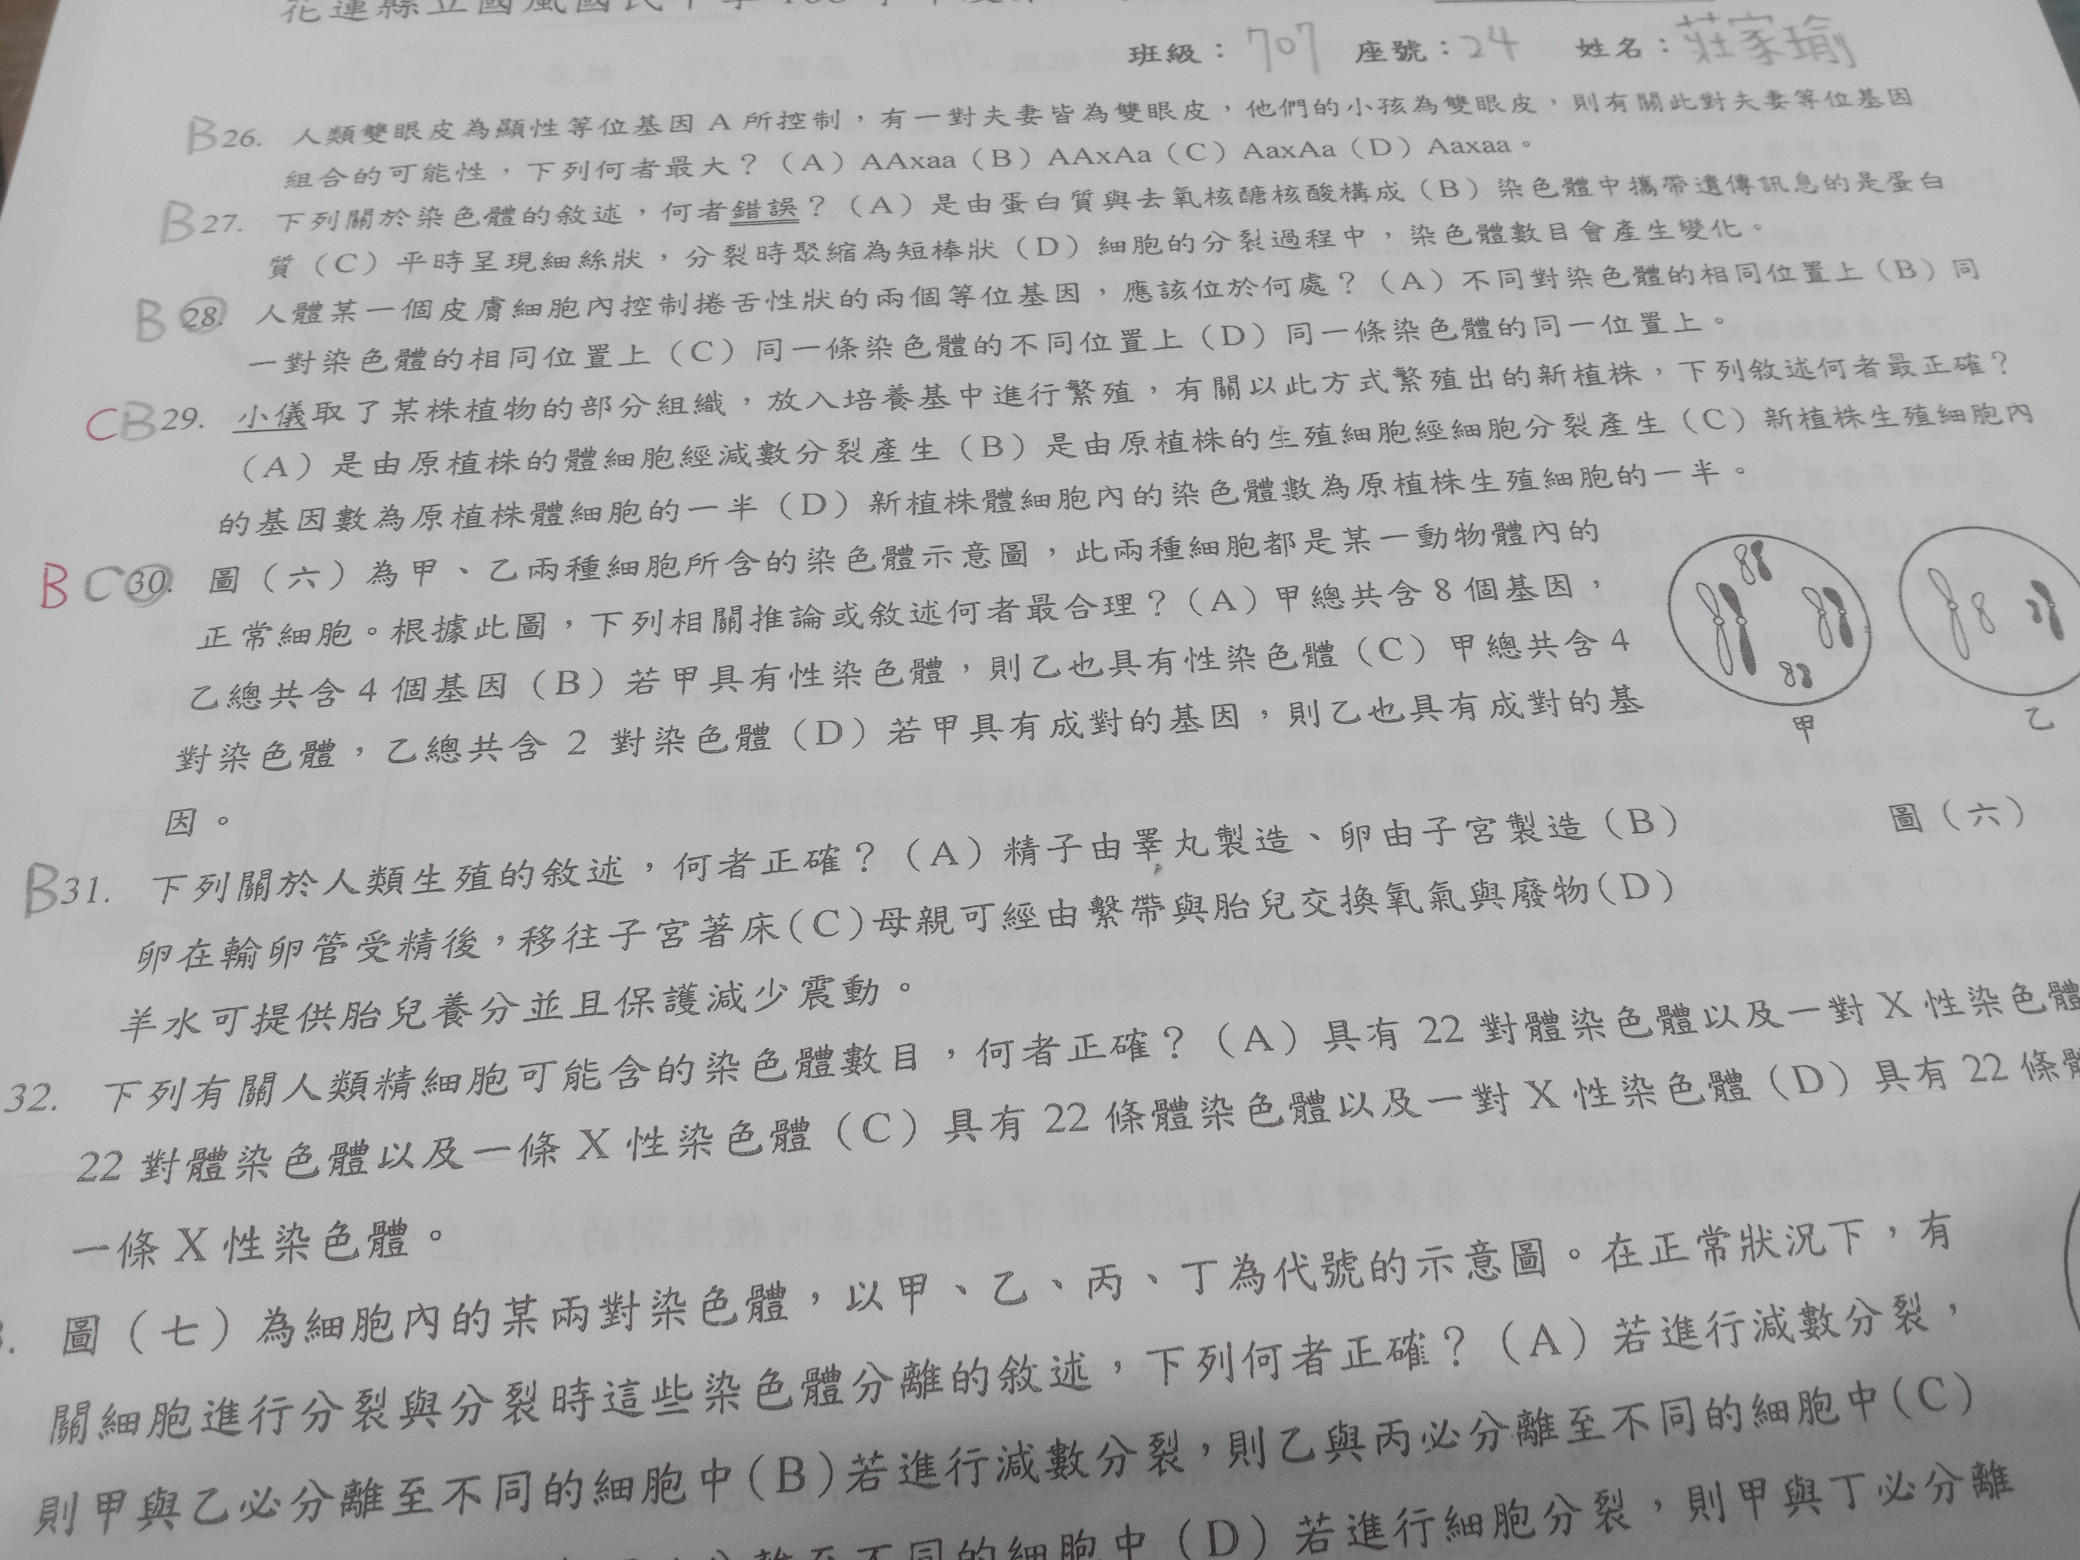 班級：707 座號：24 姓名：莊家瑜
B26. 人類雙眼皮為顯性等位基因 A 所控制，有一對夫妻皆為雙眼皮，他們的小孩為雙眼皮，則有關此對夫妻等位基因
組合的可能性，下列何者最大？（A）AAxaa（B）AAxAa（C）AaxAa（D）Aaxaa。
B27. 下列關於染色體的敘述，何者錯誤？（A）是由蛋白質與去氧核醣核酸構成（B）染色體中攜帶遺傳訊息的是蛋白
質（C）平時呈現細絲狀，分裂時聚縮為短棒狀（D）細胞的分裂過程中，染色體數目會產生變化。
B 28. 人體某一個皮膚細胞內控制捲舌性狀的兩個等位基因，應該位於何處？（A）不同對染色體的相同位置上（B）同
一對染色體的相同位置上（C）同一條染色體的不同位置上（D）同一條染色體的同一位置上。
CB29. 小儀取了某株植物的部分組織，放入培養基中進行繁殖，有關以此方式繁殖出的新植株，下列敘述何者最正確？
（A）是由原植株的體細胞經減數分裂產生（B）是由原植株的生殖細胞經細胞分裂產生（C）新植株生殖細胞內
的基因數為原植株體細胞的一半（D）新植株體細胞內的染色體數為原植株生殖細胞的一半。
B C 30. 圖（六）為甲、乙兩種細胞所含的染色體示意圖，此兩種細胞都是某一動物體內的
正常細胞。根據此圖，下列相關推論或敘述何者最合理？（A）甲總共含 8 個基因，
乙總共含 4 個基因（B）若甲具有性染色體，則乙也具有性染色體（C）甲總共含 4
對染色體，乙總共含 2 對染色體（D）若甲具有成對的基因，則乙也具有成對的基
因。
甲
乙
圖（六）
B31. 下列關於人類生殖的敘述，何者正確？（A）精子由睪丸製造、卵由子宮製造（B）
卵在輸卵管受精後，移往子宮著床(C)母親可經由繫帶與胎兒交換氧氣與廢物(D)
羊水可提供胎兒養分並且保護減少震動。
32. 下列有關人類精細胞可能含的染色體數目，何者正確？（A）具有 22 對體染色體以及一對 X 性染色體
22 對體染色體以及一條 X 性染色體（C）具有 22 條體染色體以及一對 X 性染色體（D）具有 22 條體
一條 X 性染色體。
圖（七）為細胞內的某兩對染色體，以甲、乙、丙、丁為代號的示意圖。在正常狀況下，有
關細胞進行分裂與分裂時這些染色體分離的敘述，下列何者正確？（A）若進行減數分裂，
則甲與乙必分離至不同的細胞中(B)若進行減數分裂，則乙與丙必分離至不同的細胞中(C)
分離至不同的細胞中（D）若進行細胞分裂，則甲與丁必分離